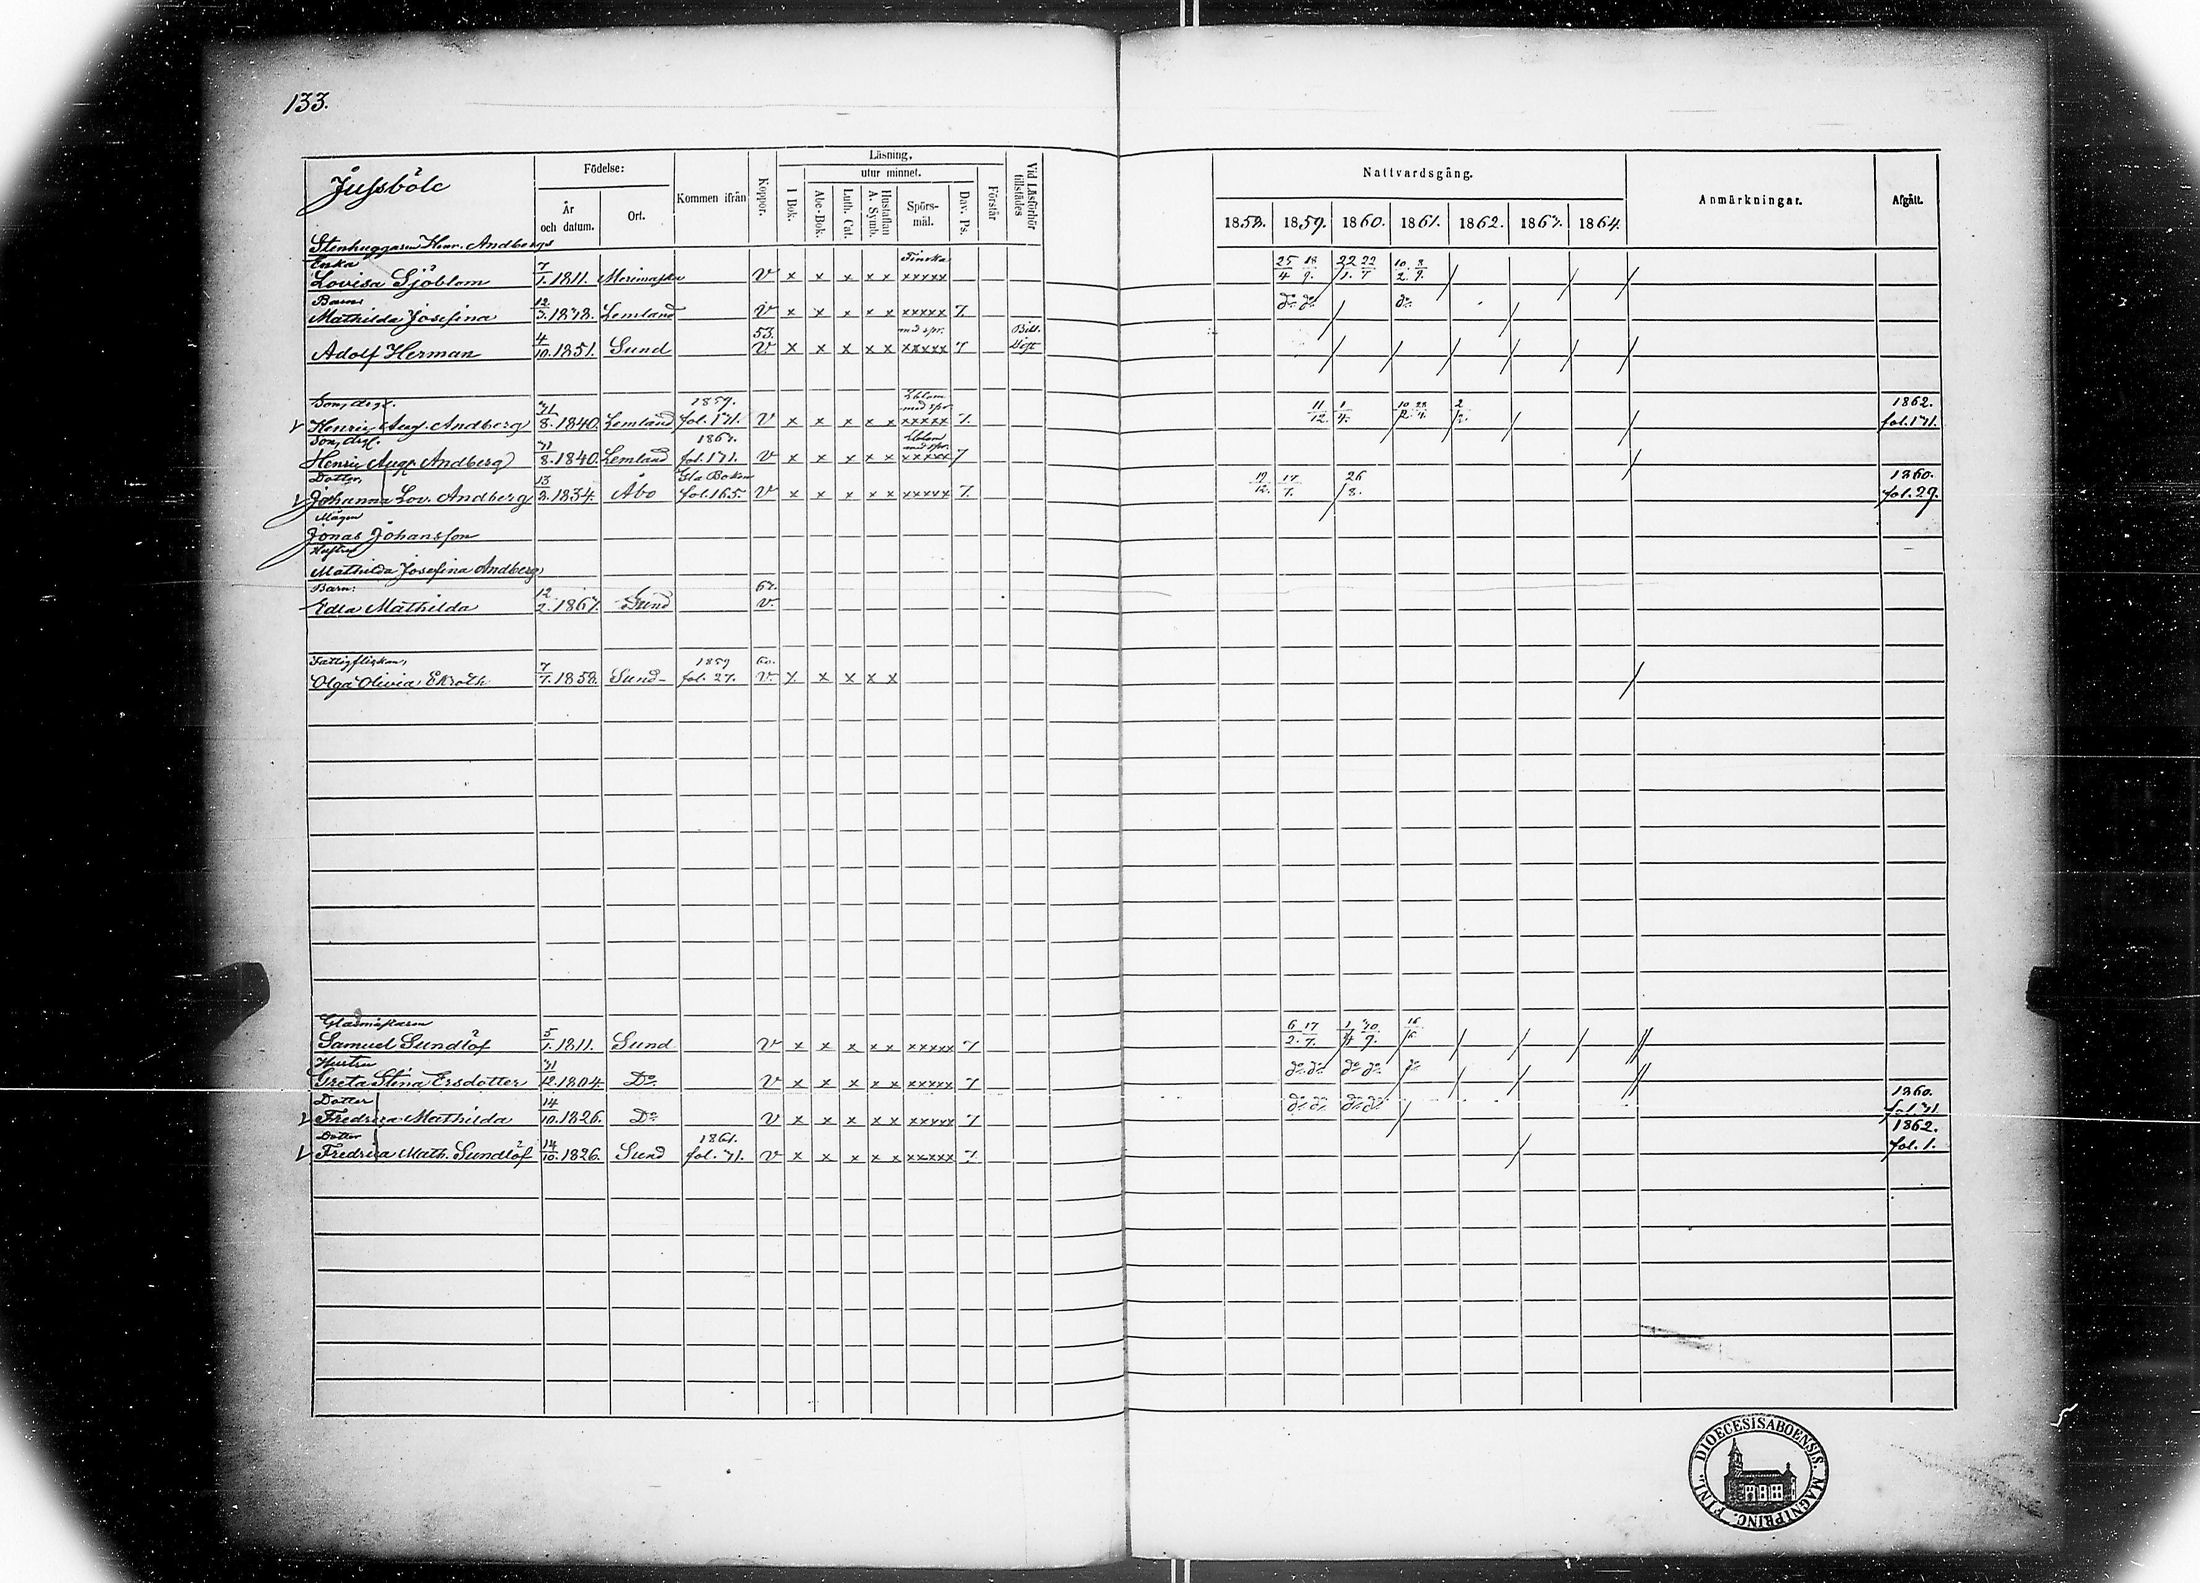 133.
Jussböle
Födelse:
År och datum.
Ort.
Kommen ifrån
Koppor.
Läsning,
utur minnet.
I Bok.
Abc-Bok.
Luth. Cat.
Hustaflan A. Symb.
Spörsmål.
Dav. Ps.
Förstår
Vid Läsförhör tillstädes
Nattvardsgång.
1858. 1859. 1860. 1861. 1862. 1863. 1864.
Anmärkningar.
Afgått.
Stenhuggaren Henr. Andbergs
Enka Finska
Lovisa Sjöblom 7/1. 1811. Merimasku V x x x x x xxxxx 25/4 18/9. 22/1. 22/7 10/2. 8/9.
Barn:
Mathilda Josefina 12/3. 1838. Lemland V x x x x x xxxxx 7. do. do. do.
53. med spr. Bill.
Adolf Herman 4/10. 1851. Sund V. x x x x x xxxxx 7
Son, drgl. 1859. Eblom med spr. 1862.
Henric Aug. Andberg 31/8. 1840. Lemland fol. 171. V x x x x x xxxxx 7. 11/12. 1/4. 10/2. 28/4. 2/2. fol. 171.
Son, drgl. 1863. Eblom med spr.
Henric Aug. Andberg 31/8. 1840. Lemland fol. 171. V x x x x x xxxxx 7
Dotter, Gla Boken 1860.
Johanna Lov. Andberg 13/2. 1834. Åbo fol. 165. V x x x x x xxxxx 7. 19/12. 17/7. 26/8. fol. 29.
Mågen
Jonas Johansson
Hustru
Mathilda Josefina Andberg
Barn: 63.
Edla Mathilda 12/2. 1863. Sund V.
Fattigflickan, 1859 60.
Olga Olivia Ekroth 7/7. 1858. Sund fol. 27. V. x x x x x
Glasmästaren
Samuel Sundlöf 5/1. 1811. Sund V x x x x x xxxxx 7. 6/2. 17/7. 1/4 30/9. 16/6.
Hustru
Greta Stina Ersdotter 31/12. 1804. Do. V x x x x x xxxxx 7 do. do. do. do. do.
Dotter 1860.
Fredrica Mathilda 14/10. 1826. Do. V x x x x x xxxxx 7 do. do. do. do. fol. 71.
Dotter 1861. 1862.
Fredrica Math. Sundlöf 14/10. 1826. Sund fol. 71. V x x x x x xxxxx 7. fol. 1.
DIOECESIS ABOENSIS. MAGNI PRINC. FINL.